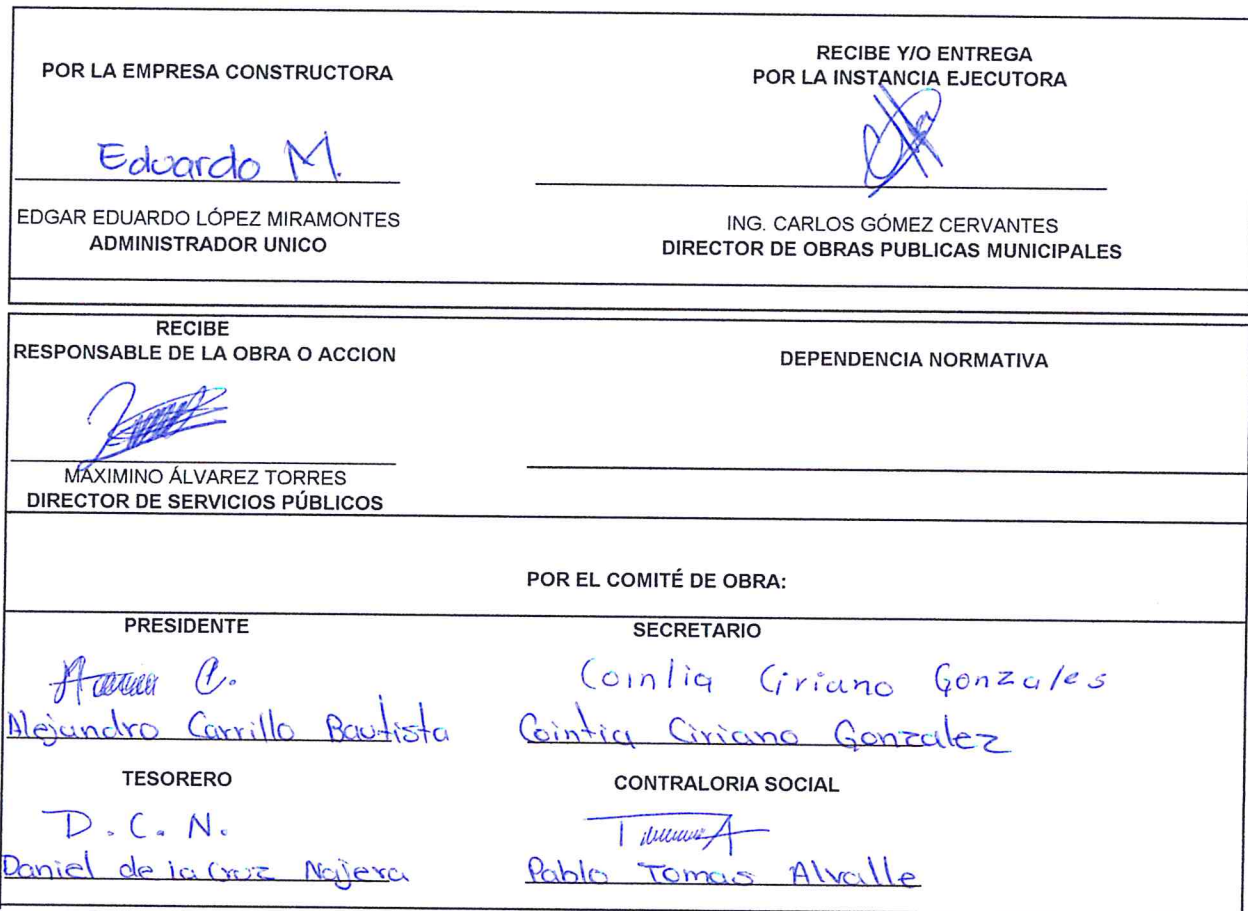 POR LA EMPRESA CONSTRUCTORA
Eduardo M.
EDGAR EDUARDO LÓPEZ MIRAMONTES
ADMINISTRADOR UNICO
RECIBE Y/O ENTREGA
POR LA INSTANCIA EJECUTORA
ING. CARLOS GÓMEZ CERVANTES
DIRECTOR DE OBRAS PUBLICAS MUNICIPALES
RECIBE
RESPONSABLE DE LA OBRA O ACCION
MAXIMINO ÁLVAREZ TORRES
DIRECTOR DE SERVICIOS PÚBLICOS
DEPENDENCIA NORMATIVA
POR EL COMITÉ DE OBRA:
PRESIDENTE
C.
Alejandro Carrillo Bautista
SECRETARIO
Cointia Ciriano Gonzales
Cointia Ciriano Gonzalez
TESORERO
D. C. N.
Daniel de la Cruz Najera
CONTRALORIA SOCIAL
Pablo Tomas Alvalle